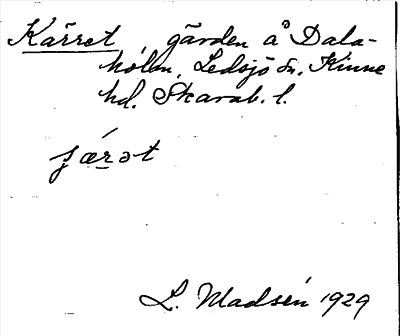 Kärret, gården å Dala-
hólen, Ledsjö sn, Kinne
hd. Skarab. l.
ʂǽrət
L. Madsén 1929